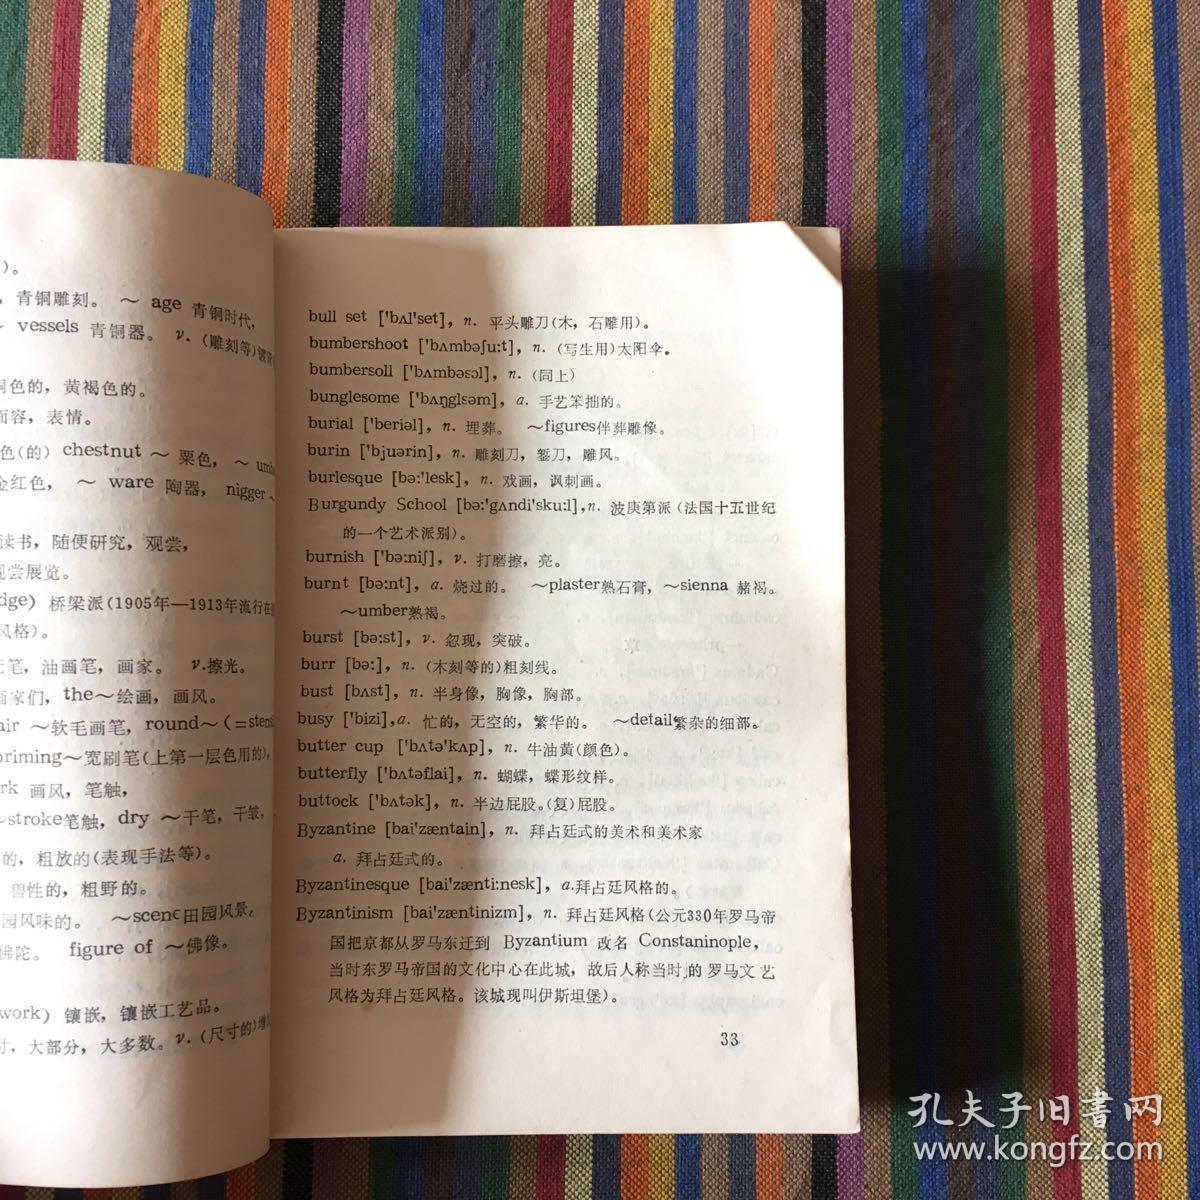 )。
，青铜雕刻。 ～ age 青铜时代，
～ vessels 青铜器。 v. (雕刻等)镀
色的，黄褐色的。
面容，表情。
色(的) chestnut ～ 栗色，～
金红色， ～ ware 陶器，nigger～
读书，随便研究，观尝，
观尝展览。
dge) 桥梁派(1905年—1913年流行在
风格)。
笔，油画笔，画家。 v.擦光。
画家们，the～绘画，画风。
air ～软毛画笔，round～(=stens
priming～宽刷笔(上第一层色用的)，
rk 画风，笔触，
～stroke笔触，dry ～干笔，干皴。
的，粗放的(表现手法等)。
兽性的，粗野的。
园风味的。 ～scene田园风景。
佛陀。 figure of ～佛像。
work) 镶嵌，镶嵌工艺品。
寸，大部分，大多数。v. (尺寸的)
bull set ['bʌl'set]，n. 平头雕刀(木，石雕用)。
bumbershoot ['bʌmbəʃu:t]，n. (写生用)太阳伞。
bumbersoll ['bʌmbəsɔl]，n. (同上)
bunglesome ['bʌŋglsəm]，a. 手艺笨拙的。
burial ['beriəl]，n. 埋葬。 ～figures伴葬雕像。
burin ['bjuərin]，n. 雕刻刀，錾刀，雕风。
burlesque [bə:'lesk]，n. 戏画，讽刺画。
Burgundy School [bə:'gʌndi'sku:l],n. 波庚第派 (法国十五世纪
的一个艺术派别)。
burnish ['bə:niʃ]，v. 打磨擦，亮。
burnt [bə:nt]，a. 烧过的。 ～plaster熟石膏，～sienna 赭褐。
～umber熟褐。
burst [bə:st]，v. 忽现，突破。
burr [bə:]，n. (木刻等的)粗刻线。
bust [bʌst]，n. 半身像，胸像，胸部。
busy ['bizi],a. 忙的，无空的，繁华的。 ～detail繁杂的细部。
butter cup ['bʌtə'kʌp]，n. 牛油黄(颜色)。
butterfly ['bʌtəflai]，n. 蝴蝶，蝶形纹样。
buttock ['bʌtək]，n. 半边屁股。(复)屁股。
Byzantine [bai'zæntain]，n. 拜占廷式的美术和美术家
a. 拜占廷式的。
Byzantinesque [bai'zænti:nesk]，a.拜占廷风格的。
Byzantinism [bai'zæntinizm]，n. 拜占廷风格(公元330年罗马帝
国把京都从罗马东迁到 Byzantium 改名 Constaninople，
当时东罗马帝国的文化中心在此城，故后人称当时的罗马文艺
风格为拜占廷风格。该城现叫伊斯坦堡)。
33
孔夫子旧书网
www.kongfz.com